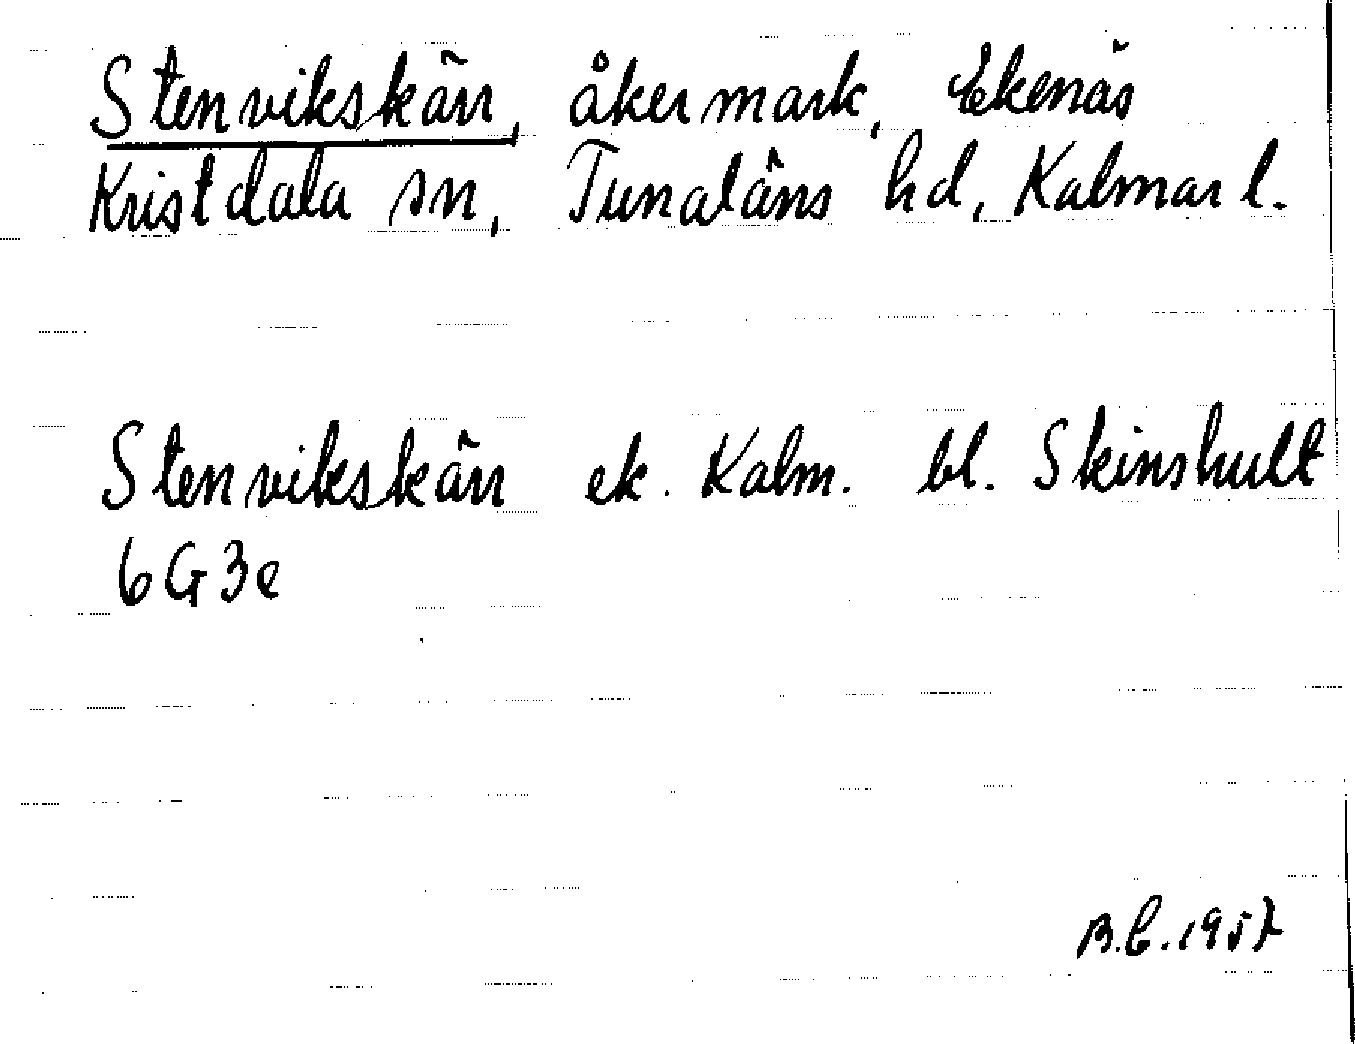 Stenvikskärr, åkermark, Ekenäs
Kristdala sn, Tunaläns hd, Kalmar l.
Stenvikskärr ek. Kalm. bl. Skinshult
6G3e
B.C.1957